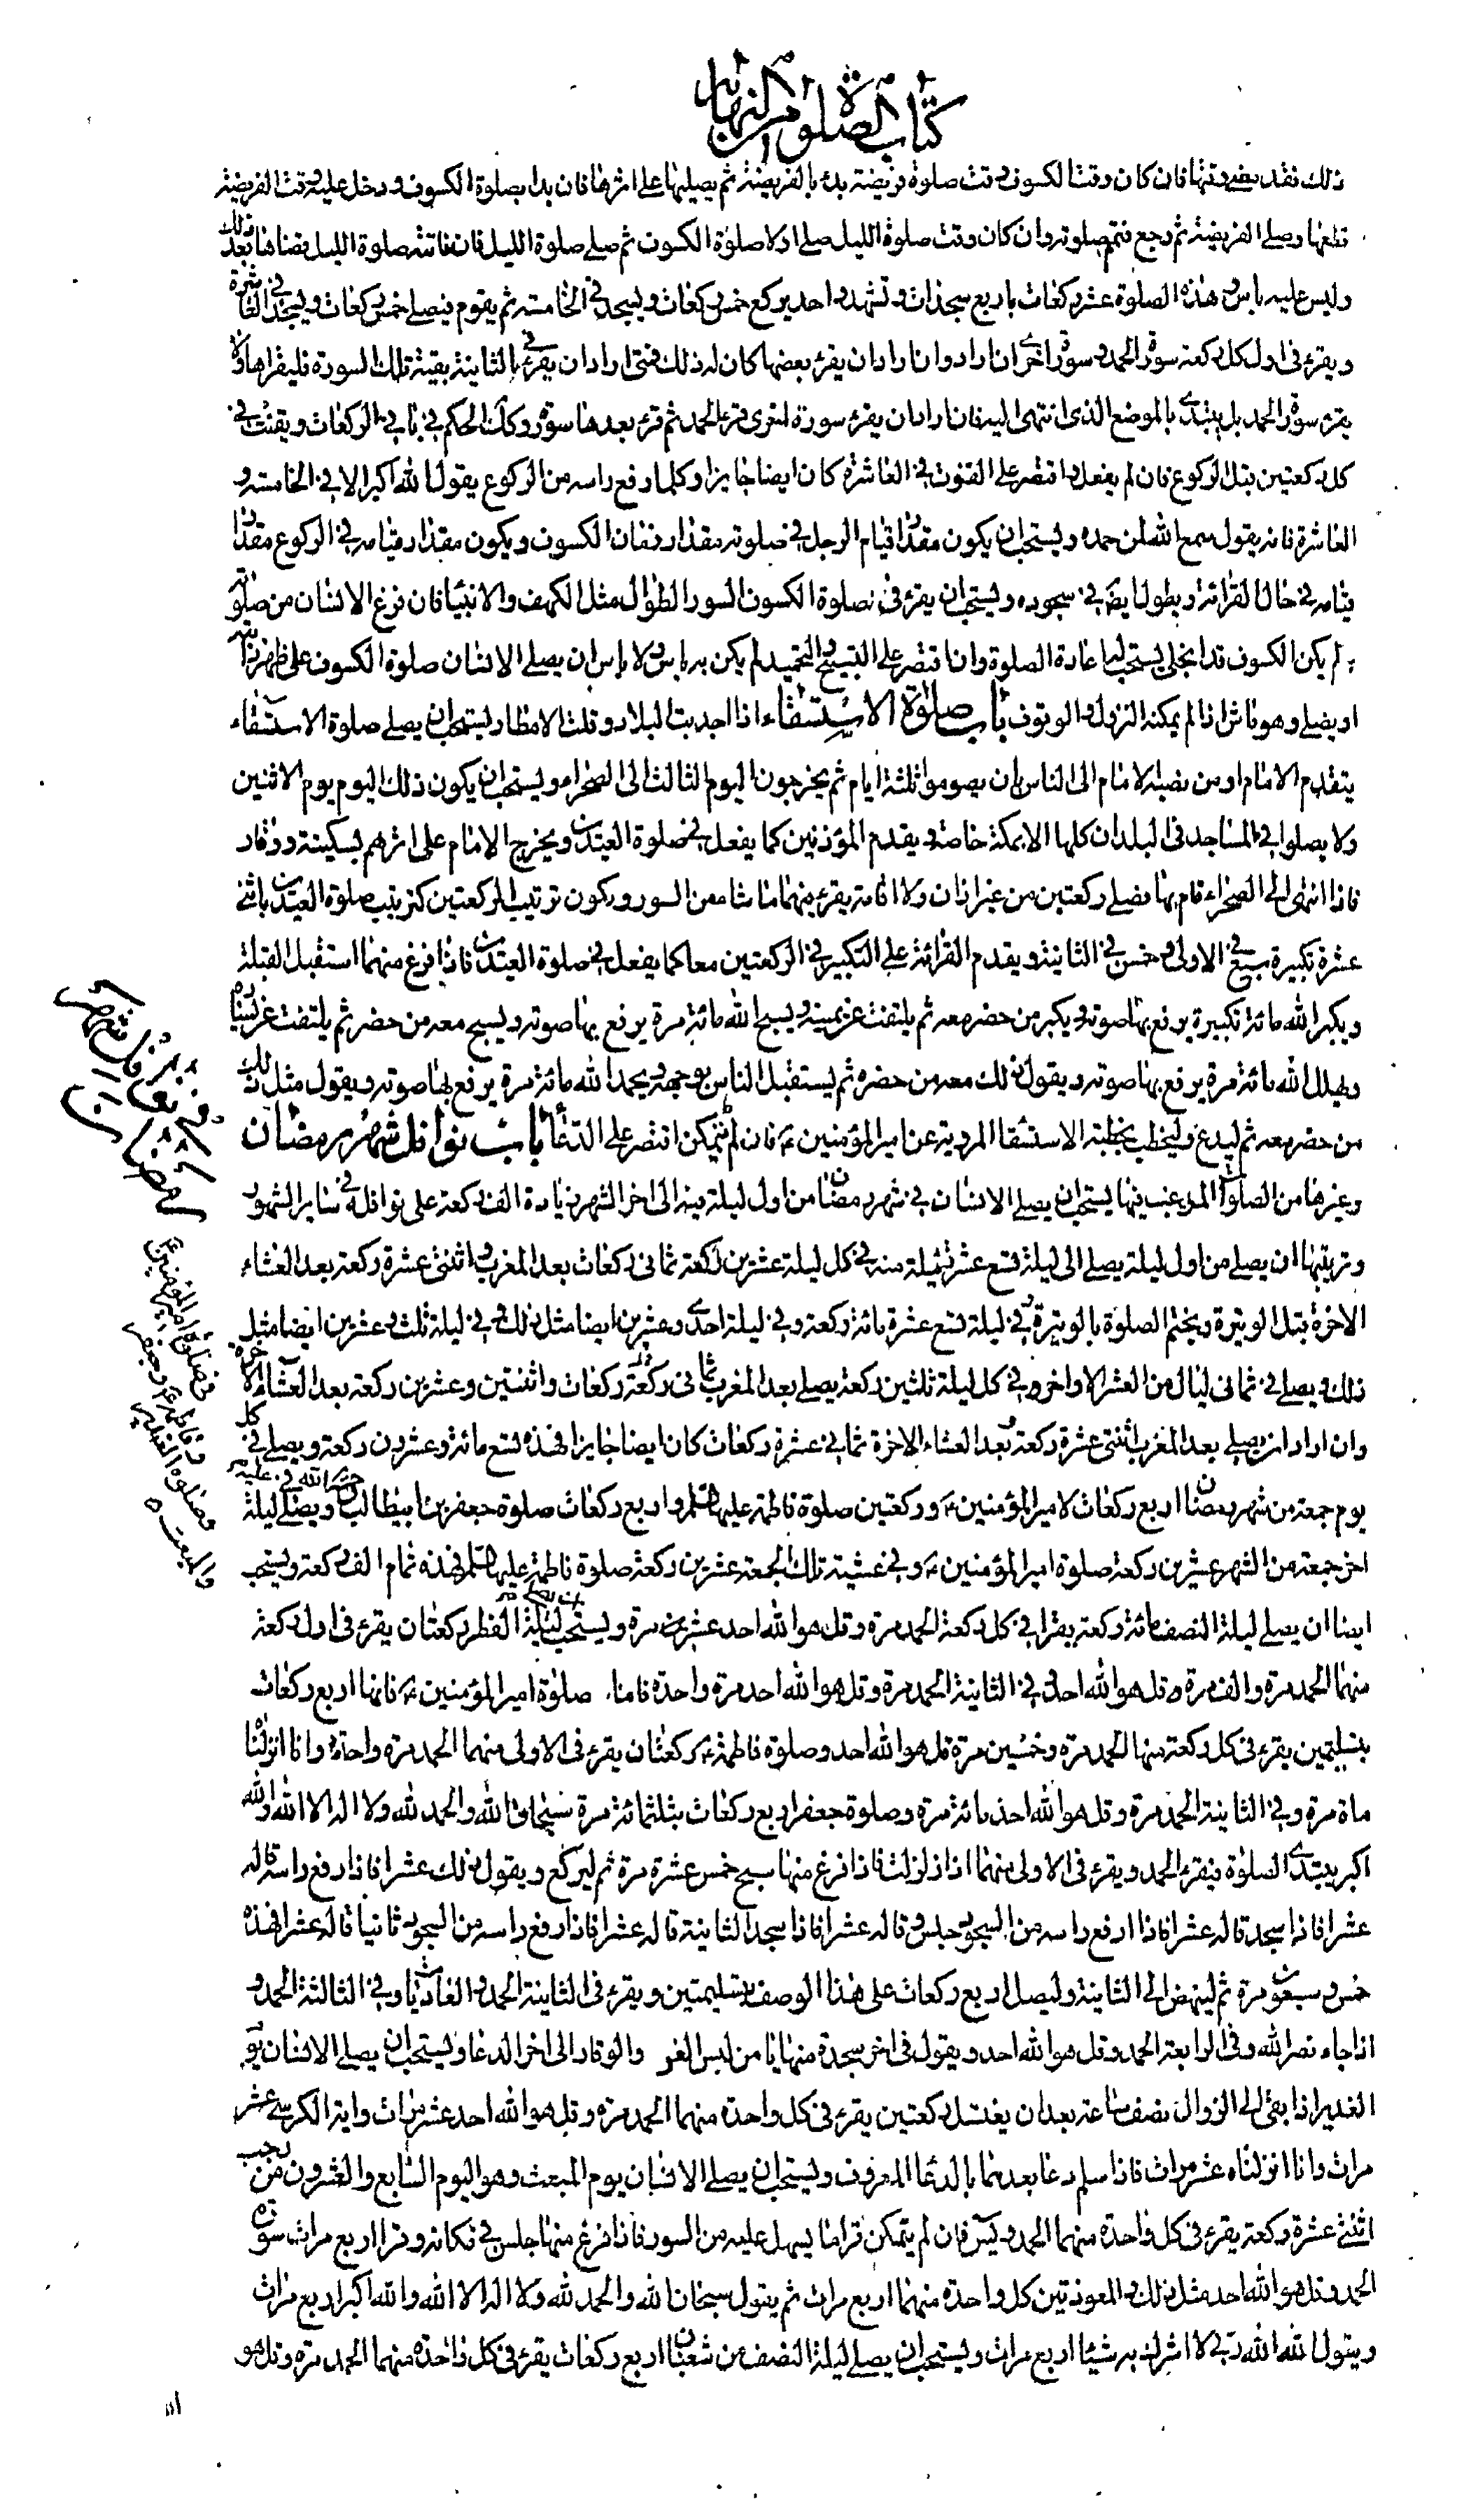 كتاب الصلوة من النهاية
ذلك فقد مضى وقتها فان كان وقت الكسوف وقت صلوة فريضة بدء بالفريضة ثم يصليها على اثرها فان بدا بصلوة الكسوف ودخل عليه وقت الفريضة
قطعها وصلى الفريضة ثم رجع فتمم صلوته وان كان وقت صلوة الليل صلى اولا صلوة الكسوف ثم صلى صلوة الليل فان فاتته صلوة الليل قضاها بعد ذلك
وليس عليه باس وهذه الصلوة عشر ركعات باربع سجدات وتشهد واحد يركع خمس ركعات ويسجد في الخامسة ثم يقوم فيصلى خمس ركعات ويسجد في العاشرة
ويقرء في اول كل ركعة سورة الحمد وسورة اخرى ان اراد وان اراد ان يقرء بعضها كان له ذلك فمتى اراد ان يقرء في الثانية بقية تلك السورة فليقراها ولا
يقرء سورة الحمد بل يبتدى بالموضع الذى انتهى اليه فان اراد ان يقرء سورة اخرى قرء الحمد ثم قرء بعدها سورة وكك الحكم في باقى الركعات ويقنت في
كل ركعتين قبل الركوع فان لم يفعل واقتصر على القنوت في العاشرة كان ايضا جايزا وكلما رفع راسه من الركوع يقول الله اكبر الا في الخامسة و
العاشرة فانه يقول سمع الله لمن حمده ويستحب ان يكون مقدار قيام الرجل في صلوته مقدار زمان الكسوف ويكون مقدار قيامه في الركوع مقدار
قيامه في حال القرائة ويطول ايضا في سجوده ويستحب ان يقرء في صلوة الكسوف السور الطوال مثل الكهف والانبيا فان فرغ الانسان من صلوته
ولم يكن الكسوف قد انجلى يستحب له اعادة الصلوة وان اقتصر على التسبيح والتحميد لم يكن به باس ولا باس ان يصلى الانسان صلوة الكسوف على ظهر دابته
او يصلى وهو ماش اذا لم يمكنه النزول والوقوف باب صلوة الاستسقاء اذا اجدبت البلاد وقلت الامطار يستحب ان يصلى صلوة الاستسقاء
يتقدم الامام او من نصبه الامام الى الناس بان يصوموا ثلثة ايام ثم يخرجون اليوم الثالث الى الصحراء ويستحب ان يكون ذلك اليوم يوم الاثنين
ولا يصلوا في المساجد في البلدان كلها الا بمكة خاصة ويقدم المؤذنين كما يفعل في صلوة العيدين ويخرج الامام على اثرهم بسكينة ووقار
فاذا انتهى الى الصحراء قام بها فصلى ركعتين من غير اذان ولا اقامة يقرء فيهما ما شاء من السور ويكون ترتيب الركعتين كترتيب صلوة العيدين باثنى
عشرة تكبيرة سبع في الاولى وخمس في الثانية ويقدم القرائة على التكبير في الركعتين معا كما يفعل في صلوة العيدين فاذا فرغ منهما استقبل القبلة
ويكبر الله مائة تكبيرة يرفع بها صوته ويكبر من حضر معه ثم يلتفت عن يمينه ويسبح الله مائة مرة يرفع بها صوته ويسبح معه من حضر ثم يلتفت عن يساره
ويهلل الله مائة مرة يرفع بها صوته ويقول ذلك معه من حضره ثم يستقبل الناس بوجهه ويحمد الله مائة مرة يرفع بها صوته ويقول مثل ذلك
من حضر معه ثم ليدع وليخطب بخطبة الاستسقا المروية عن امير المؤمنين ع فان لم يتمكن اقتصر على الدعا باب نوافل شهر رمضان
وغيرها من الصلوات المرغب فيها يستحب ان يصلى الانسان في شهر رمضان من اول ليلة منه الى اخر الشهر زيادة الف ركعة على نوافله في ساير الشهور
وترتيبها ان يصلى من اول ليلة يصلى الى ليلة تسع عشرة ليلة منه في كل ليلة عشرين ركعة ثمانى ركعات بعد المغرب واثنتى عشرة ركعة بعد العشاء
الاخرة قبل الوتيرة ويختم الصلوة بالوتيرة وفي ليلة تسع عشرة مائة ركعة وفي ليلة احدى وعشرين ايضا مثل ذلك وفي ليلة ثلث وعشرين ايضا مثل
ذلك ويصلى في ثمانى ليال من العشر الاواخر في كل ليلة ثلثين ركعة يصلى بعد المغرب ثمانى ركعات واثنتين وعشرين ركعة بعد العشاء الاخرة
وان اراد ان يصلى بعد المغرب اثنتى عشرة ركعة وبعد العشاء الاخرة ثمانى عشرة ركعات كان ايضا جايزا فهذه تسع مائة وعشرون ركعة ويصلى في كل
يوم جمعة من شهر رمضان اربع ركعات لامير المؤمنين ع وركعتين صلوة فاطمة عليها السلام واربع ركعات صلوة جعفر بن ابيطالب ويصلى ليلة
اخر جمعة من الشهر عشرين ركعة صلوة امير المؤمنين ع وفي عشية تلك الجمعة عشرين ركعة صلوة فاطمة عليها السلام فهذه تمام الف ركعة ويستحب
ايضا ان يصلى ليلة النصف مائة ركعة يقرا في كل ركعة الحمد مرة وقل هو الله احد عشر مرة ويستحب ان يصلى ليلة الفطر ركعتان يقرء في اول ركعة
منهما الحمد مرة والف مرة قل هو الله احد وفي الثانية الحمد مرة وقل هو الله احد مرة واحدة فاما صلوة امير المؤمنين ع فانها اربع ركعات
بتسليمتين يقرء في كل ركعة منها الحمد مرة وخمسين مرة قل هو الله احد وصلوة فاطمة ع ركعتان يقرء في الاولى منهما الحمد مرة واحدة وانا انزلناه
ماة مرة وفي الثانية الحمد مرة وقل هو الله احد مائة مرة وصلوة جعفر اربع ركعات بثلثمائة مرة سبحان الله والحمد لله ولا اله الا الله والله
اكبر يبتدى الصلوة فيقرء الحمد ويقرء في الاولى منهما اذا زلزلت فاذا فرغ منها سبح خمس عشرة مرة ثم ليركع ويقول ذلك عشرا فاذا رفع راسه قاله
عشرا فاذا سجد قاله عشرا فاذا ارفع راسه من السجود جلس وقاله عشرا فاذا سجد الثانية قاله عشرا فاذا رفع راسه من السجود ثانيا قاله عشرا فهذه
خمس وسبعون مرة ثم لينهض الى الثانية وليصل اربع ركعات على هذا الوصف بتسليمتين ويقرء في الثانية الحمد والعاديات وفي الثالثة الحمد و
اذا جاء نصر الله وفي الرابعة الحمد وقل هو الله احد ويقول في اخر سجدة منها يا من لبس العز والوقار الى اخر الدعا ويستحب ان يصلى الانسان يوم
الغدير اذا بقى الى الزوال نصف ساعة بعد ان يغتسل ركعتين يقرء في كل واحدة منهما الحمد مرة وقل هو الله احد عشر مرات واية الكرسى عشر
مرات وانا انزلناه عشر مرات فاذا سلم دعا بعدهما بالدعا المعروف ويستحب ان يصلى الانسان يوم المبعث وهو اليوم السابع والعشرون من رجب
اثنتى عشرة ركعة يقرء في كل واحدة منهما الحمد ويس فان لم يتمكن قرا ما يسهل عليه من السور فاذا فرغ منها جلس في مكانه وقرا اربع مرات سورة
الحمد وقل هو الله احد مثل ذلك والمعوذتين كل واحدة منهما اربع مرات ثم يقول سبحان الله والحمد لله ولا اله الا الله والله اكبر اربع مرات
ويقول الله الله ربى لا اشرك به شيئا اربع مرات ويستحب ان يصلى ليلة النصف من شعبان اربع ركعات يقرء في كل واحدة منهما الحمد مرة وقل هو